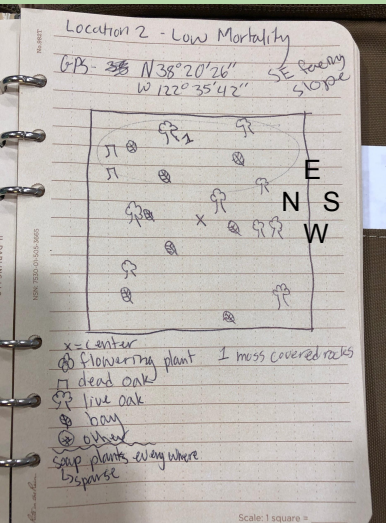 Location 2 - Low Mortality
GPS- N 38° 20' 26"
W 122° 35' 42"
SE facing
slope
No. 982T
1
E
N S
W
NSN: 7530-01-505-5665
x = center
flowering plant
1 moss covered rocks
dead oak
live oak
bay
other
soap plants everywhere
↳ sparse
Scale: 1 square =